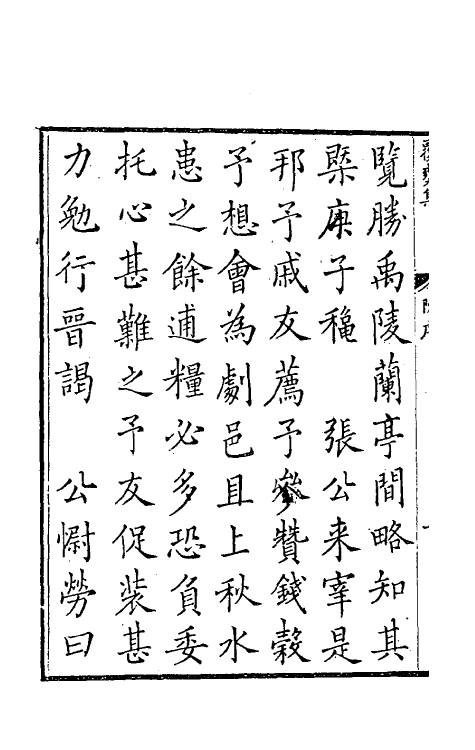 覽勝禹陵蘭亭間略知其
槩庚子穐　張公来宰是
邦予戚友薦予參贊錢穀
予想會為劇邑且上秋水
患之餘逋糧必多恐負委
托心甚難之予友促装甚
力勉行晋謁　公慰勞曰